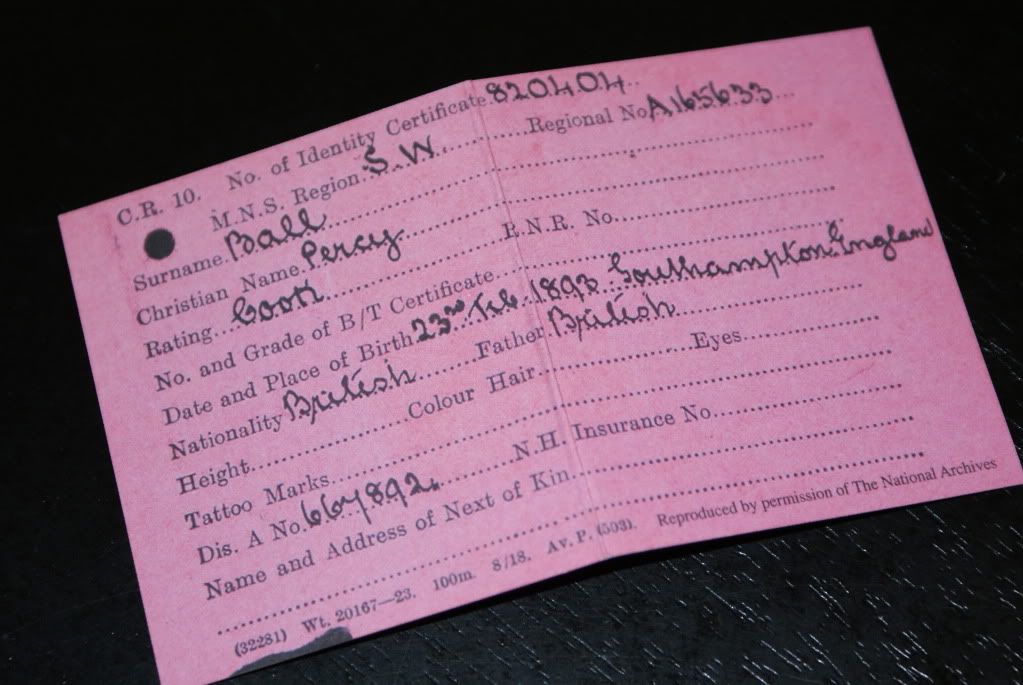 C.R. 10. No. of Identity Certificate 820404
M.N.S. Region S.W. Regional No A165633
Surname Ball
Christian Name Percy
Rating Cook R.N.R. No.
No. and Grade of B/T Certificate
Date and Place of Birth 23rd Feb. 1892 Southampton England
Nationality British Father British
Height Colour Hair Eyes
Tattoo Marks
Dis. A No. 667892 N.H. Insurance No.
Name and Address of Next of Kin
(32281) Wt. 20167—23. 100m. 8/18. Av. P. (503). Reproduced by permission of The National Archives